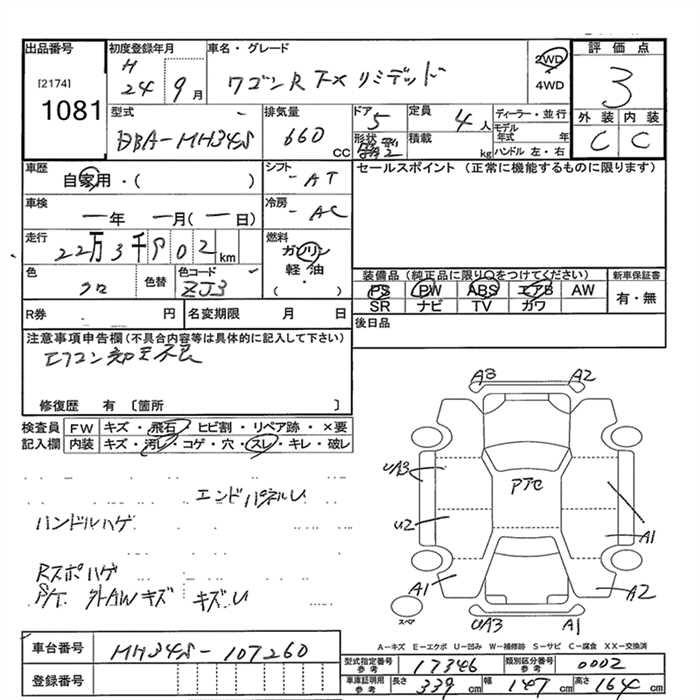 出品番号
[2174]
1081
初度登録年月
H 24年 9月
車名・グレード
ワゴンR FX リミテッド
2WD
4WD
評価点
3
外装 内装
C C
型式
DBA-MH34S
排気量
660 CC
ドア 5
形状
定員 4人
積載 kg
ディーラー・並行
モデル年式 年
ハンドル 左・右
車歴
自家用・( )
シフト
AT
セールスポイント (正常に機能するものに限ります)
車検
年 月( 日)
冷房
AC
走行
22万3千902km
燃料
ガソリン
軽油
( )
色
クロ
色替
色コード
ZJ3
装備品(純正品に限り○をつけてください)
新車保証書
PS PW ABS エアB AW
SR ナビ TV カワ
有・無
R券 円
名変期限 月 日
後日品
注意事項申告欄(不具合内容等は具体的に記入して下さい)
エアコン
修復歴 有〔箇所 〕
検査員記入欄
FW キズ・飛石・ヒビ割・リペア跡・×要
内装 キズ・汚レ・コゲ・穴・スレ・キレ・破レ
エンドパネルU
ハンドルハゲ
Rスポハゲ
P/T. 外AWキズ キズU
A3 A2
UA3
PTC
U2
A1
A1
A2
スペア
UA3 A1
A-キズ E-エクボ U-凹み W-補修跡 S-サビ C-腐食 XX-交換済
車台番号
MH34S-107260
登録番号
型式指定番号 参考 17346
類別区分番号 参考 0002
車庫証明用 参考 長さ 339 cm 幅 147 cm 高さ 164 cm